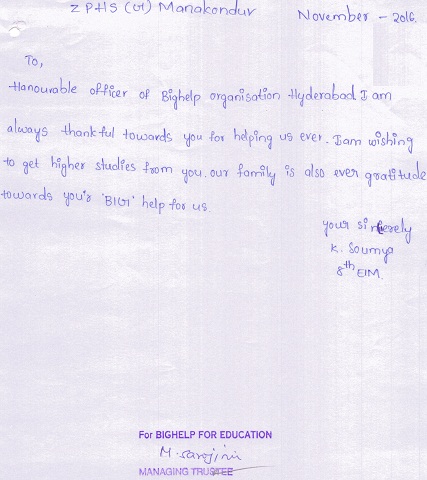 ZPHS (G) Manakondur
November - 2016.
To,
Hanourable officer of Bighelp organisation Hyderabad I am
always thankful towards you for helping us ever. Iam wishing
to get higher studies from you. our family is also ever gratitude
towards you's 'BIG' help for us.
your sincerely
K. Soumya
8th EIM.
For BIGHELP FOR EDUCATION
M. Sarojini
MANAGING TRUSTEE